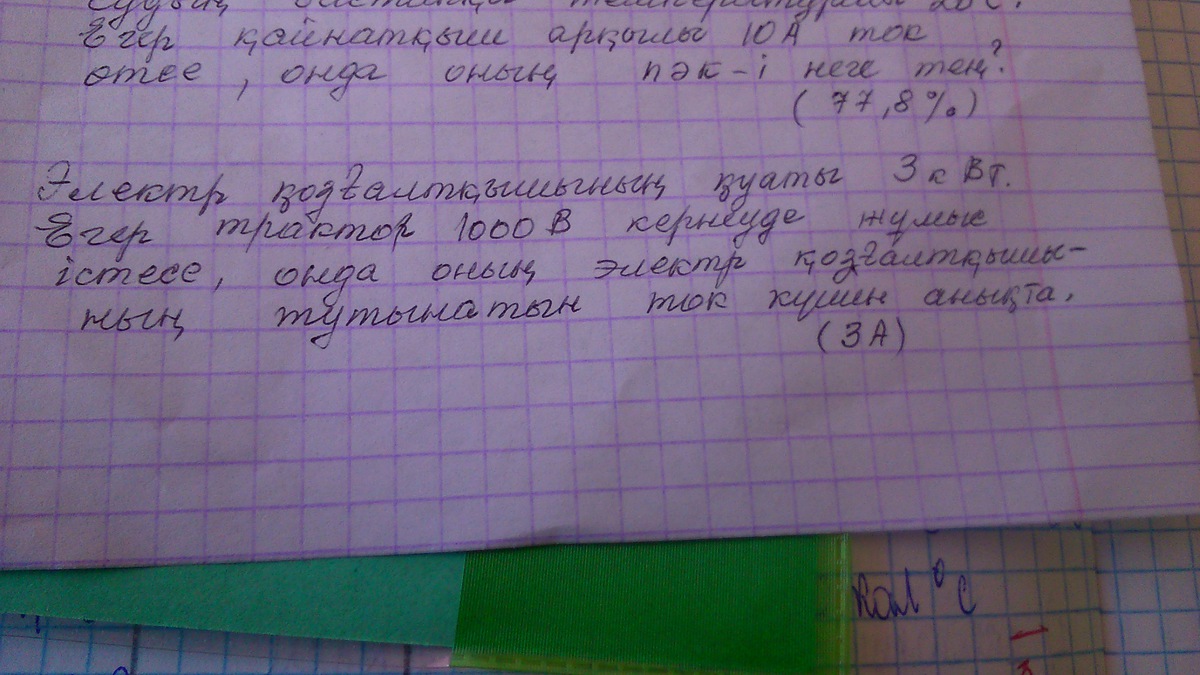 судың бастапқы температурасы 20°C.
Егер қайнатқыш арқылы 10А ток
өтсе, онда оның ПӘК-і неге тең?
(77,8%)
Электр қозғалтқышының қуаты 3 кВт.
Егер трактор 1000 В кернеуде жұмыс
істесе, онда оның электр қозғалтқышы-
ның тұтынатын ток күшін анықта.
(3А)
кал °С